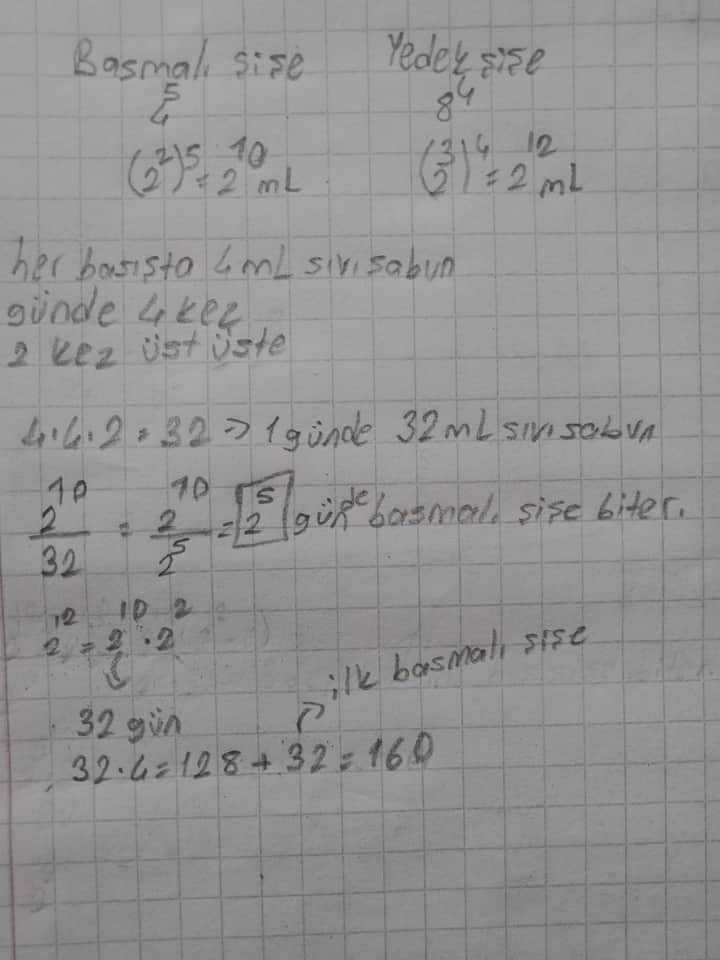 Basmalı şişe Yedek şişe
4⁵ 8⁴
(2²)⁵ = 2¹⁰ mL (2³)⁴ = 2¹² mL
her basışta 4 mL sıvı sabun
günde 4 kez
2 kez üst üste
4.4.2 = 32 => 1 günde 32 mL sıvı sabun
2¹⁰/32 = 2¹⁰/2⁵ = 2⁵ günde basmalı şişe biter.
2¹² = 2¹⁰ . 2²
32 gün ilk basmalı şişe
32.4 = 128 + 32 = 160